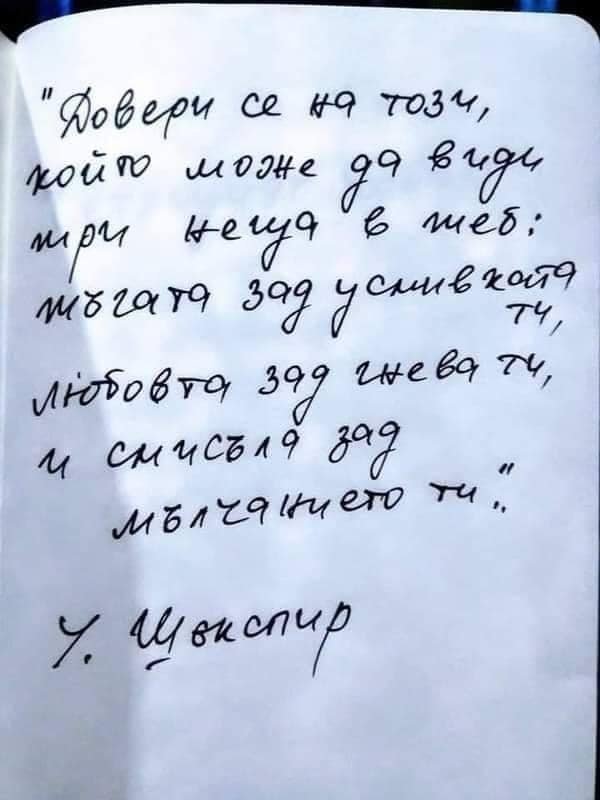 "Довери се на този,
който може да види
три неща в теб:
тъгата зад усмивката
ти,
любовта зад гнева ти,
и смисъла зад
мълчанието ти."
У. Шекспир